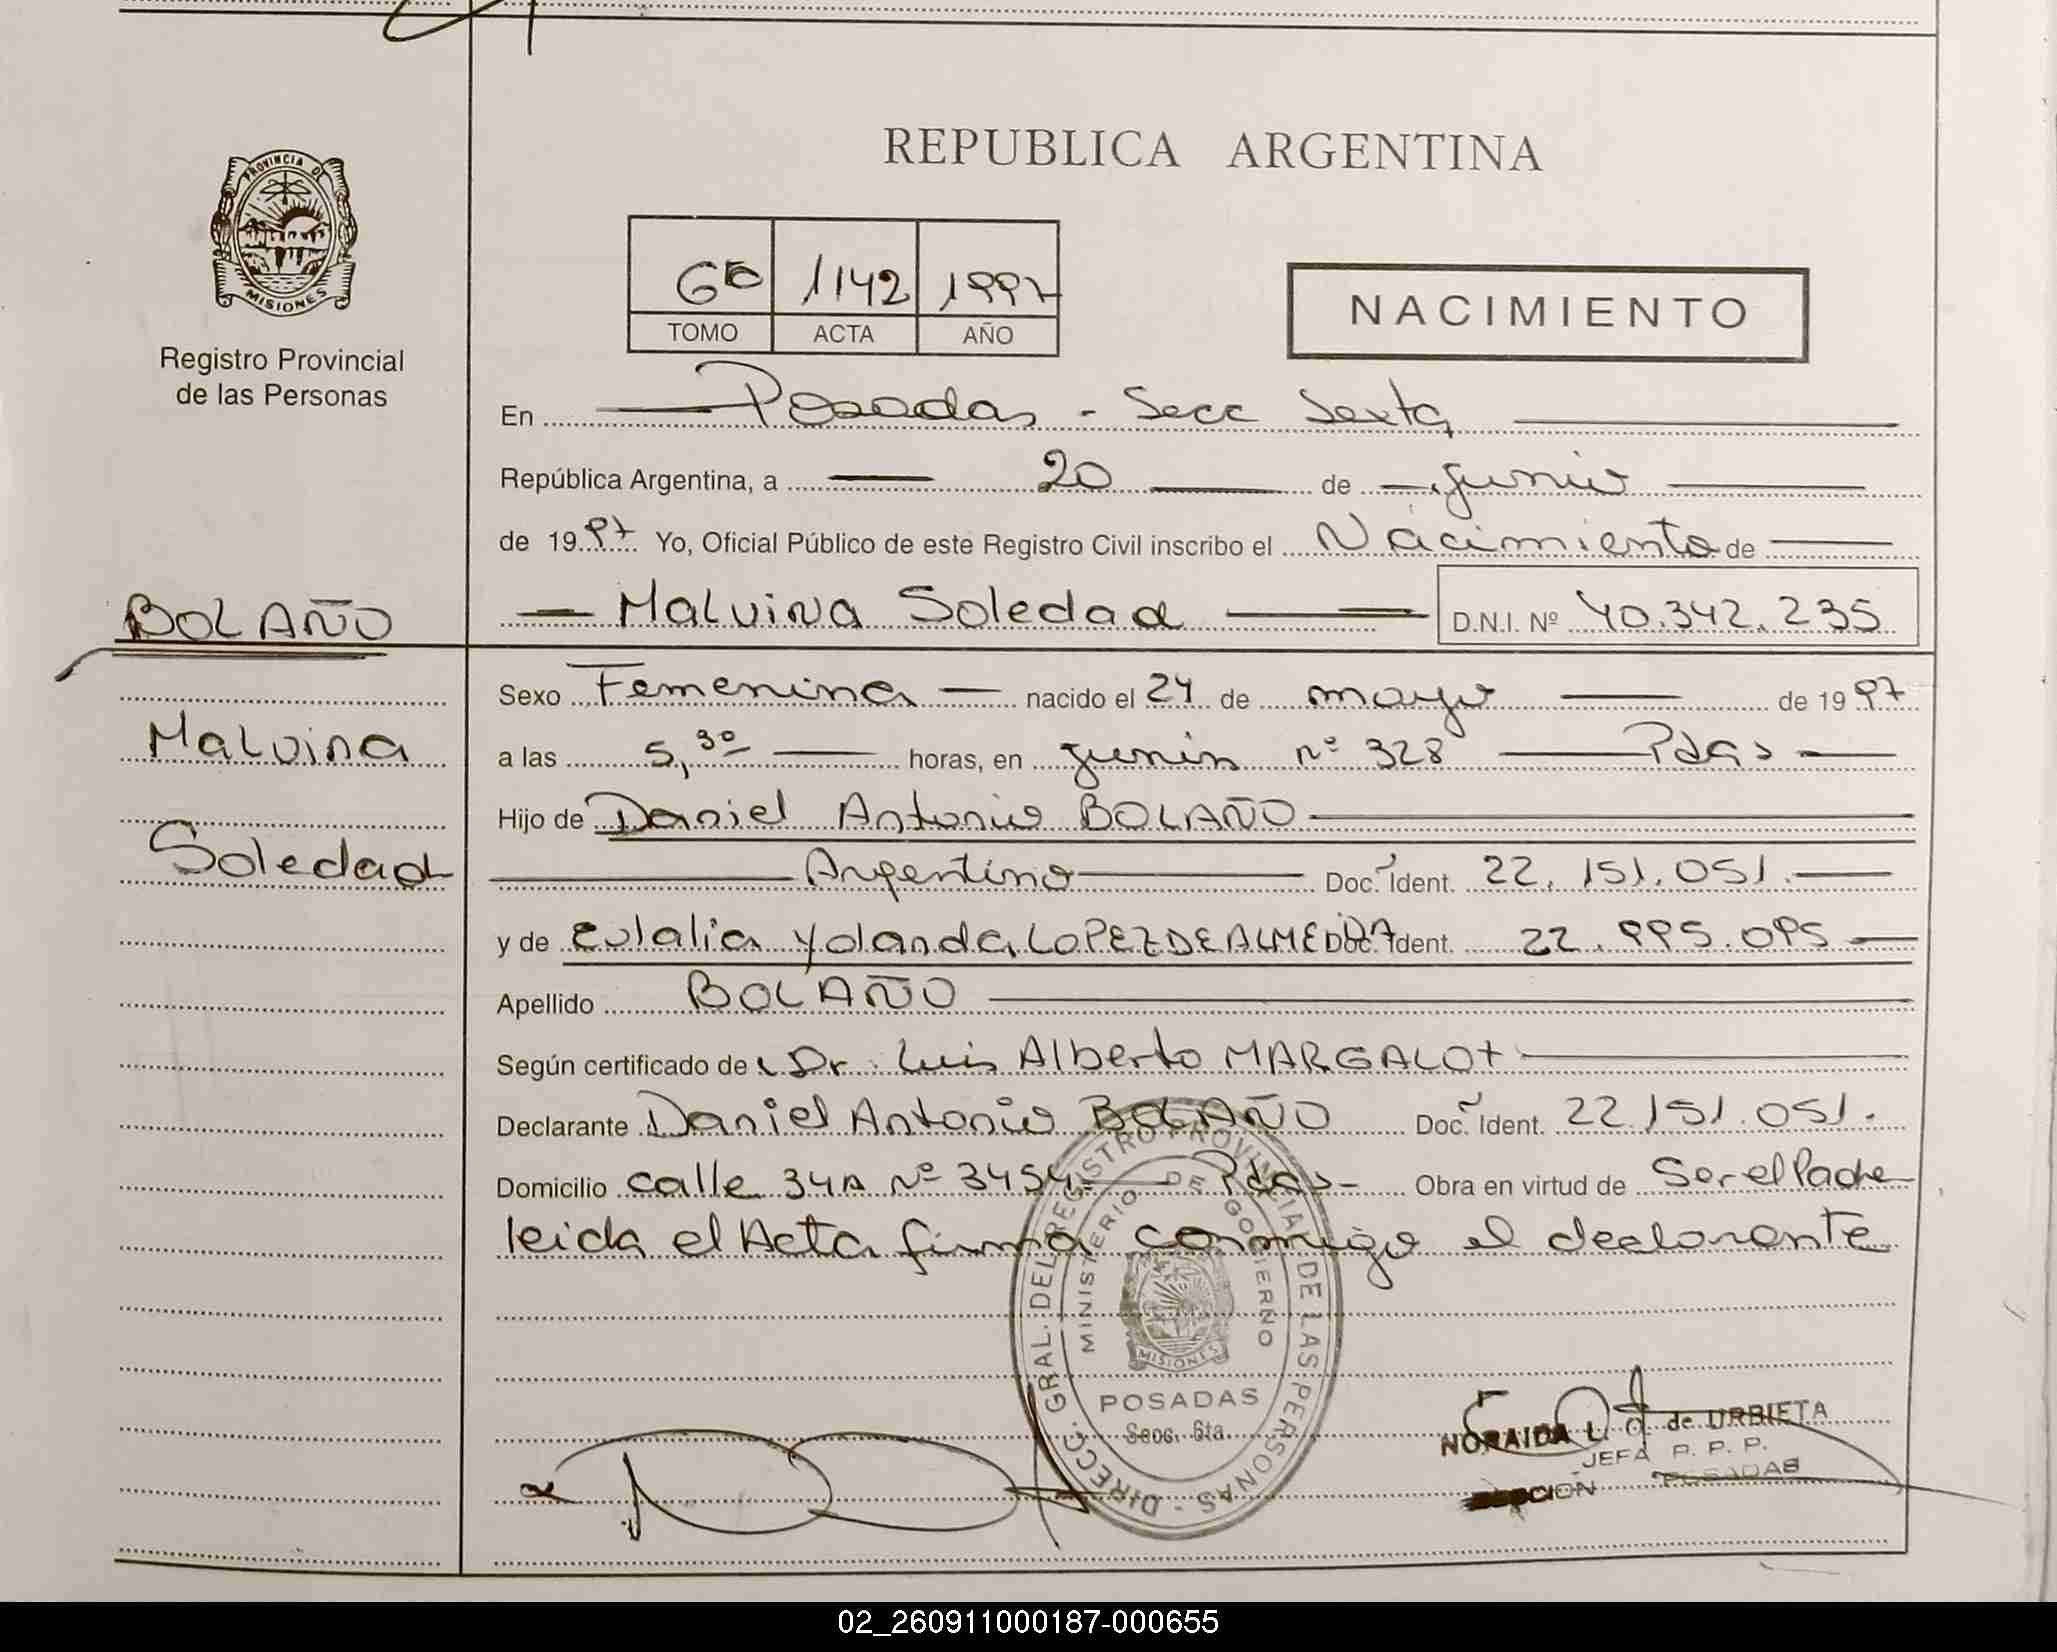 REPUBLICA ARGENTINA
PROVINCIA DE
MISIONES
Registro Provincial
de las Personas
1142 1997
TOMO ACTA AÑO
NACIMIENTO
En Posadas - Secc Sexta
República Argentina, a 20 de junio
de 1997 Yo, Oficial Público de este Registro Civil inscribo el Nacimiento de
BOLAÑO
Malvina Soledad D.N.I. Nº 40.342.235
Sexo Femenina nacido el 24 de mayo de 1997
Malvina
a las 5,30 horas, en junin nº 328 Pdas
Hijo de Daniel Antonio BOLAÑO
Soledad
Argentino Doc. Ident. 22.151.051.
y de Eulalia Yolanda LOPEZ DE ALMEIDA Doc. Ident. 22.995.095
Apellido BOLAÑO
Según certificado de Dr. Luis Alberto MARGALOT
Declarante Daniel Antonio BOLAÑO Doc. Ident. 22.151.051.
Domicilio calle 34A Nº 3454 - Pdas - Obra en virtud de Ser el Padre
leida el Acta firma conmigo el declarante
DIRECC. GRAL. DEL REGISTRO PROVINCIAL DE LAS PERSONAS -
MINISTERIO DE GOBIERNO
MISIONES
POSADAS
Secc. 6ta.
NORAIDA L. O. de URBIETA
JEFA P. P. P.
SECCION POSADAS
02_260911000187-000655